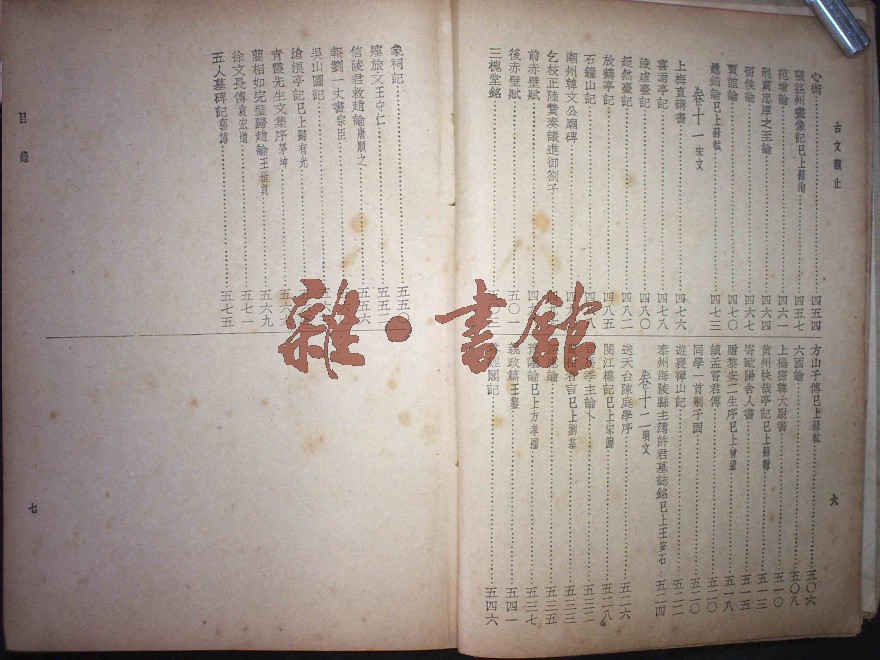 古文觀止
心術 四五四
張益州畫像記已上蘇洵 四五七
范增論 四六一
刑賞忠厚之至論 四六四
留侯論 四六七
賈誼論 四七〇
鼂錯論已上蘇軾 四七三
卷十一 宋文
上梅直講書 四七六
喜雨亭記 四七八
凌虛臺記 四八〇
超然臺記 四八二
放鶴亭記 四八五
石鐘山記
潮州韓文公廟碑
乞校正陸贄奏議進御劄子
前赤壁賦
後赤壁賦 五〇一
三槐堂銘
方山子傳已上蘇軾 五〇六
六國論 五〇八
上樞密韓太尉書 五一〇
黃州快哉亭記已上蘇轍 五一三
寄歐陽舍人書 五一五
贈黎安二生序已上曾鞏 五一八
讀孟嘗君傳 五二〇
同學一首別子固 五二〇
遊褒禪山記 五二二
泰州海陵縣主簿許君墓誌銘已上王安石 五二四
卷十二 明文
送天台陳庭學序 五二六
閱江樓記已上宋濂 五二八
季主論卜 五三一
者言已上劉基 五三三
五三五
論已上方孝孺 五三七
親政篇王鏊 五四一
經閣記 五四六
六
目錄
象祠記 五五〇
瘞旅文王守仁 五五二
信陵君救趙論唐順之 五五六
報劉一丈書宗臣
吳山圖記
滄浪亭記已上歸有光
青霞先生文集序茅坤 五六七
藺相如完璧歸趙論王世貞 五六九
徐文長傳袁宏道 五七一
五人墓碑記張溥 五七五
七
雜·書館